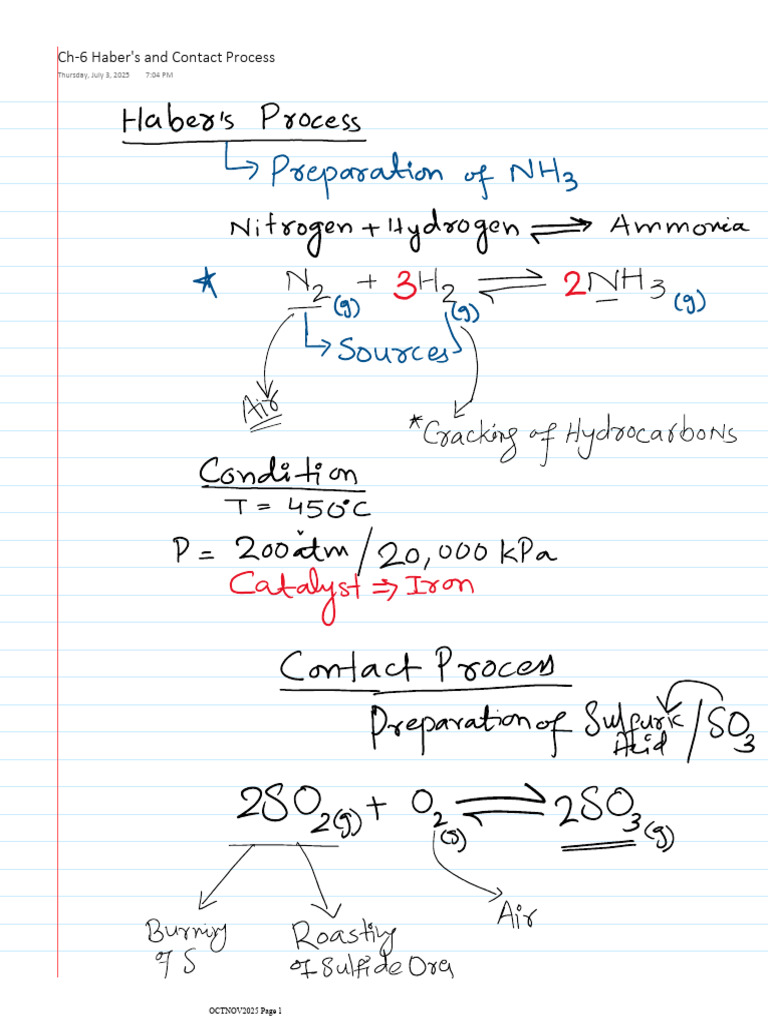 Ch-6 Haber's and Contact Process
Thursday, July 3, 2025 7:04 PM
Haber's Process
↳ Preparation of NH3
Nitrogen + Hydrogen ⇌ Ammonia
* N2(g) + 3H2(g) ⇌ 2NH3(g)
↳ Sources
Air
*Cracking of Hydrocarbons
Condition
T = 450°C
P = 200atm / 20,000 kPa
Catalyst ⇒ Iron
Contact Process
Preparation of Sulfuric Acid / SO3
2SO2(g) + O2(g) ⇌ 2SO3(g)
Air
Burning of S
Roasting of Sulfide Ore
OCTNOV2025 Page 1